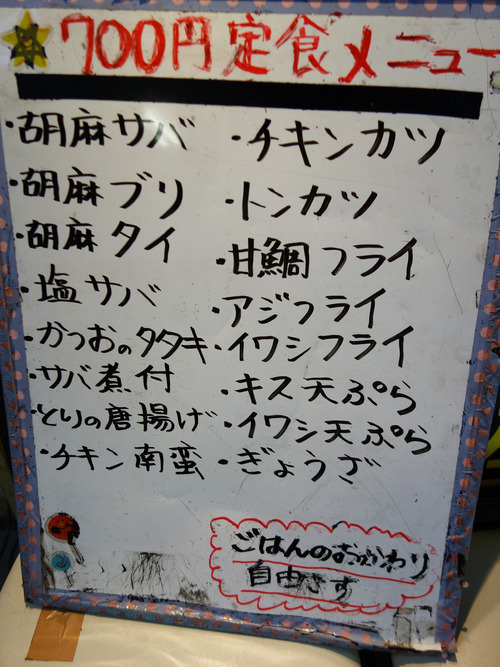 700円定食メニュー
・胡麻サバ
・胡麻ブリ
・胡麻タイ
・塩サバ
・かつおのタタキ
・サバ煮付
・とりの唐揚げ
・チキン南蛮
・チキンカツ
・トンカツ
・甘鯛フライ
・アジフライ
・イワシフライ
・キス天ぷら
・イワシ天ぷら
・ぎょうざ
ごはんのおかわり
自由です